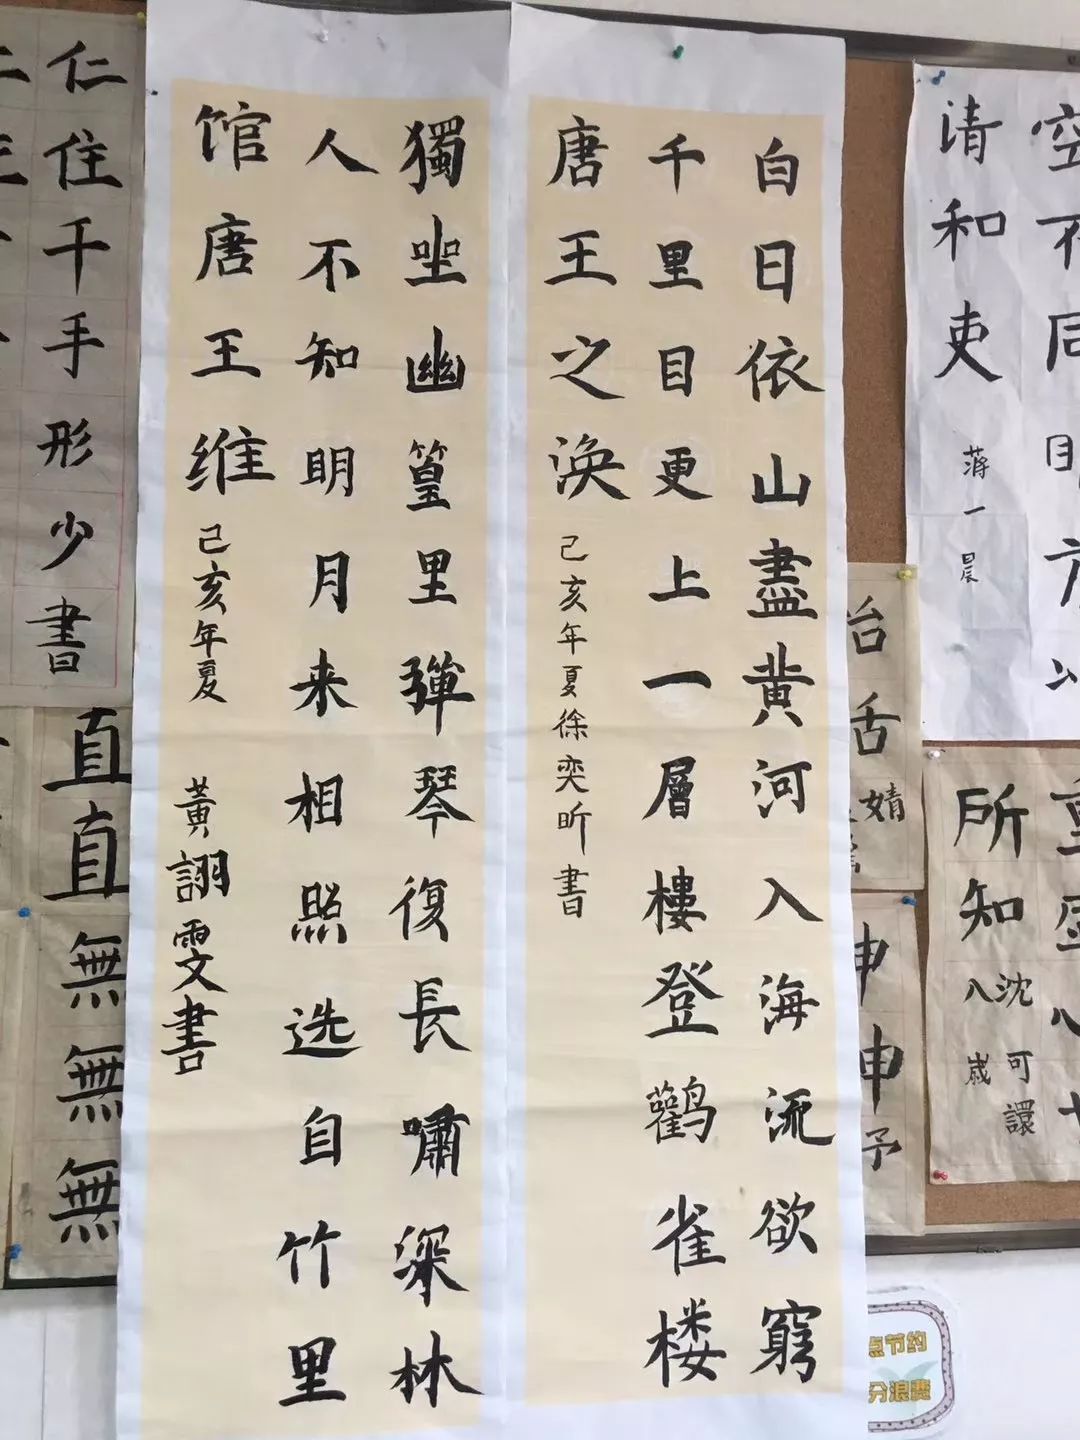 白日依山盡黄河入海流欲窮
千里目更上一層樓登鹳雀楼
唐王之涣
己亥年夏徐奕昕書
獨坐幽篁里彈琴復長嘯深林
人不知明月来相照选自竹里
馆唐王维
己亥年夏 黄詡雯書
清和吏
蒋一晨
所知
沈可譞
八歲
舌
婧
申
予
仁住千手形少書
直直無無無
点节约
分浪费